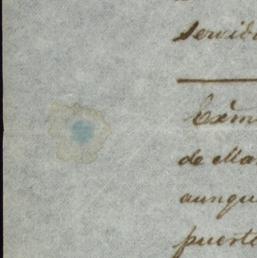 servido
Exm
de Ma
aunqu
puert